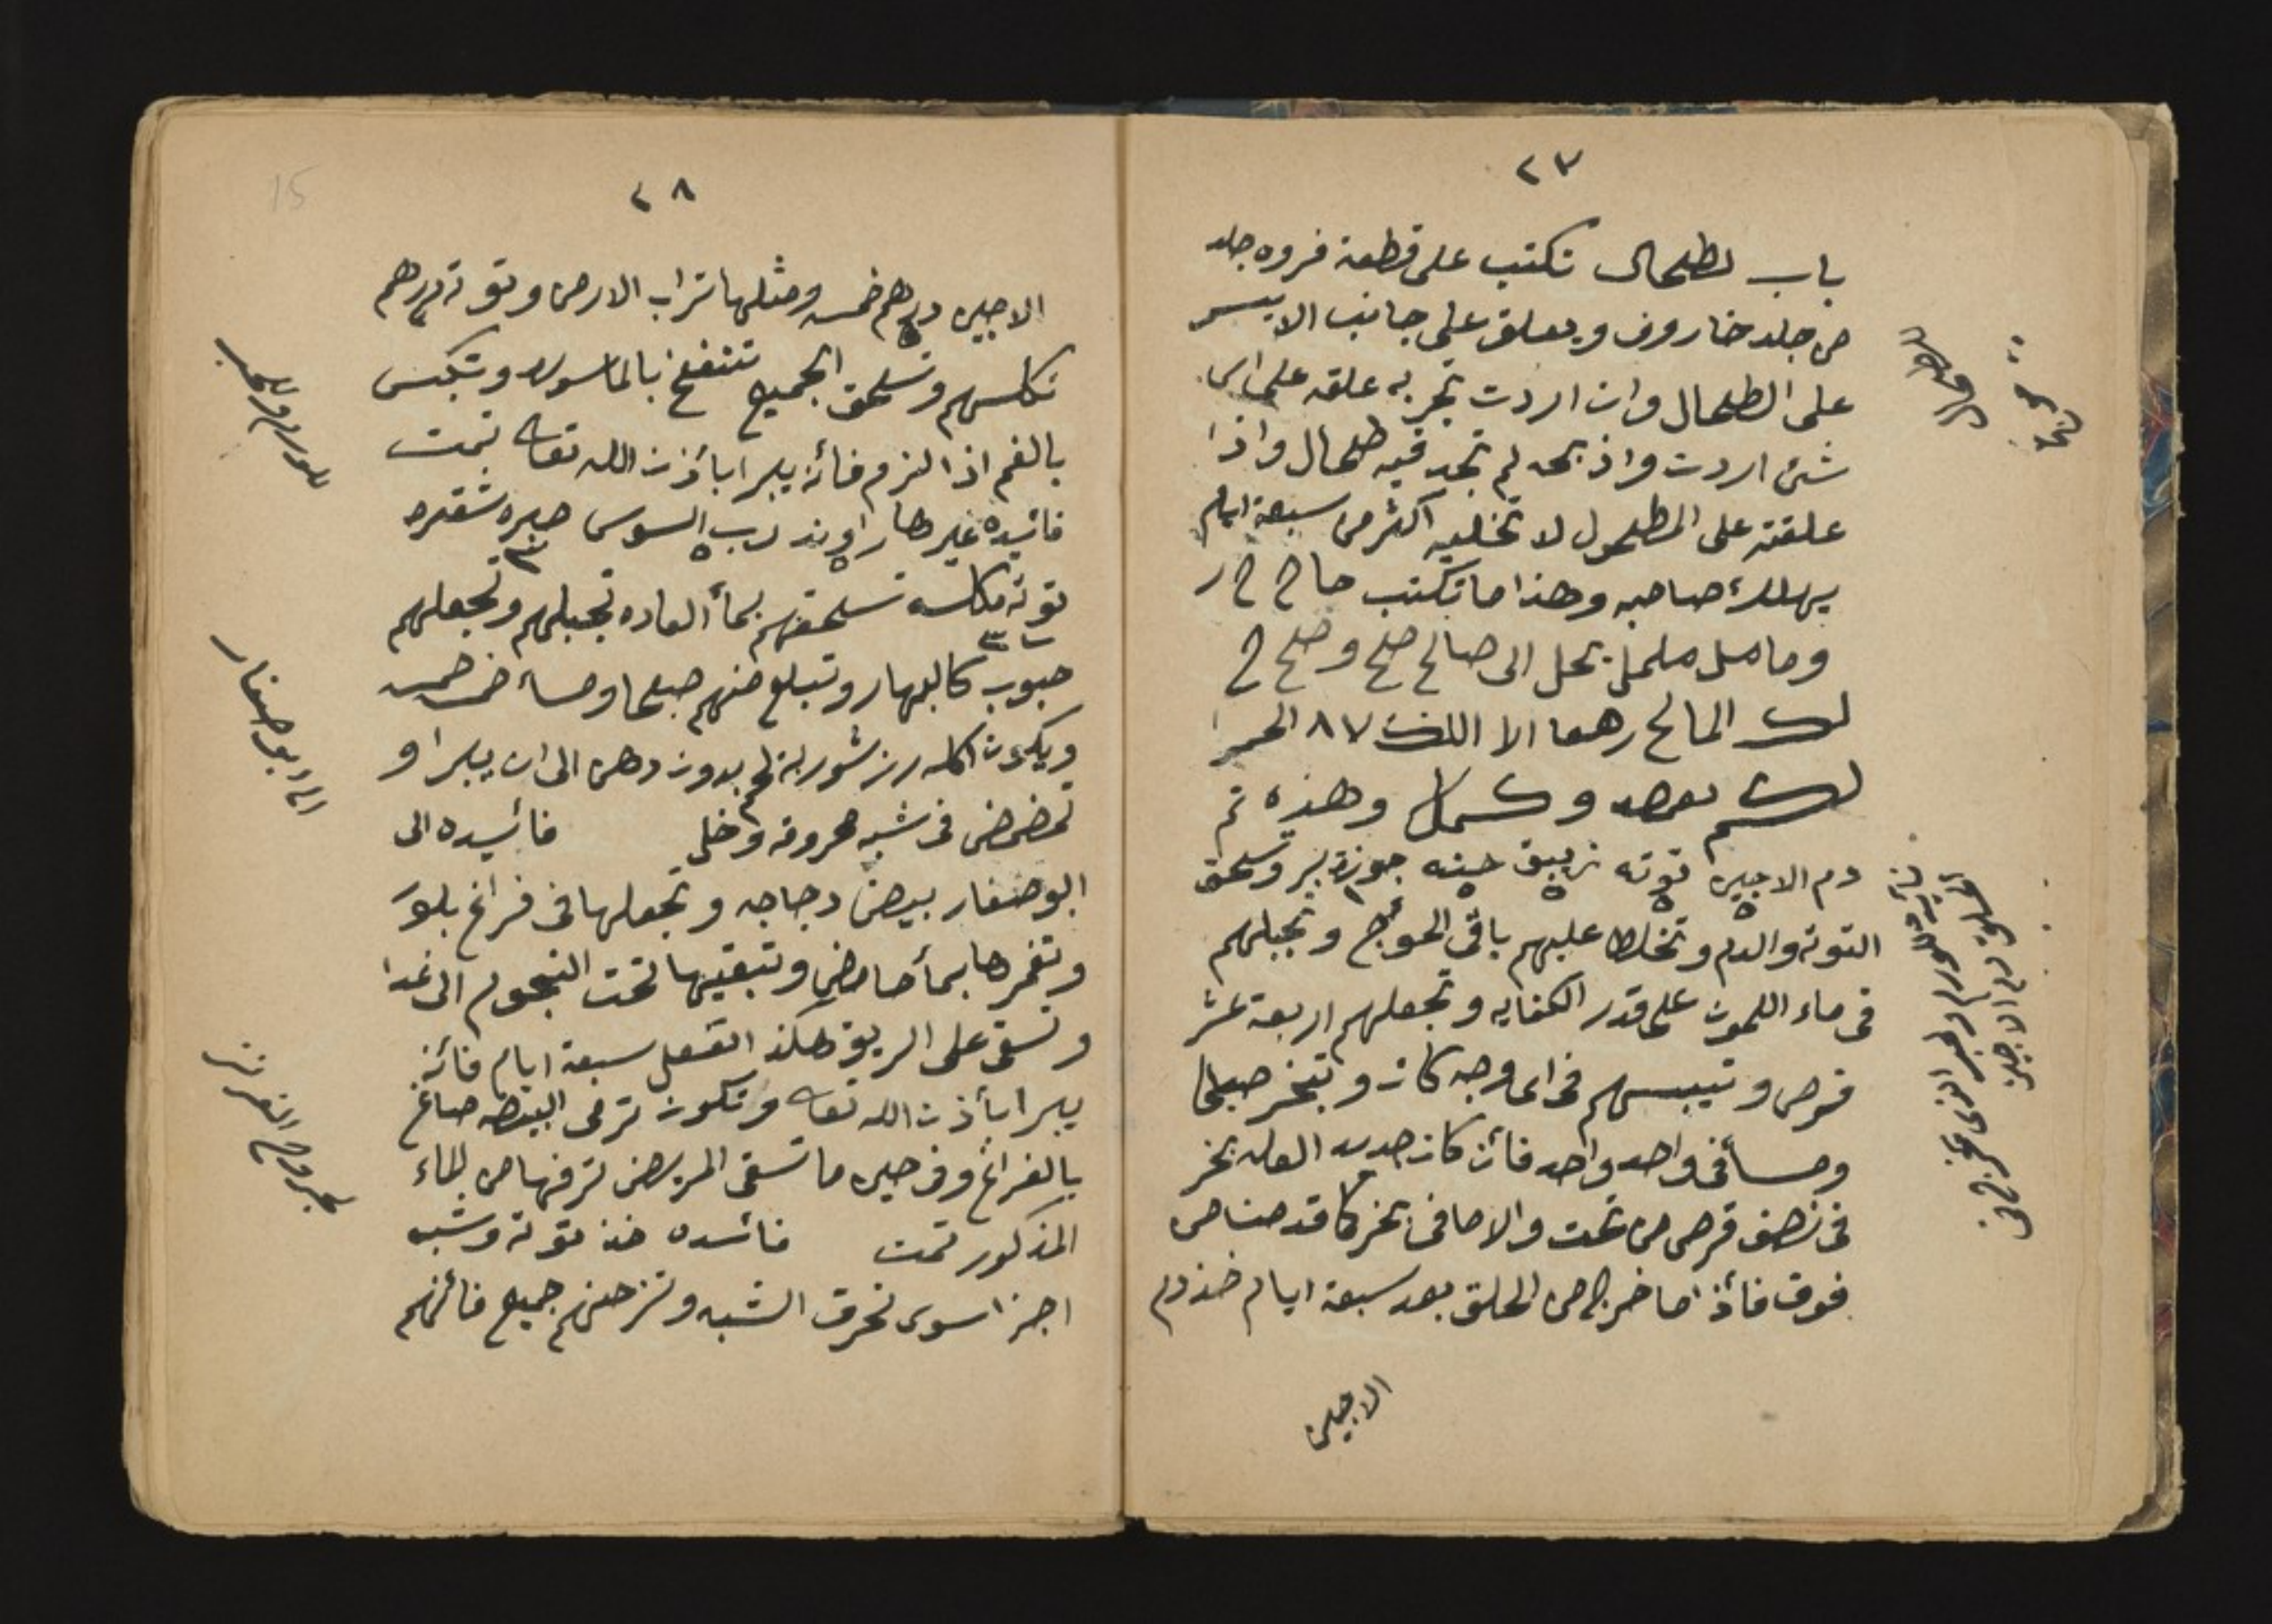 ٢٧
باب لطلحال تكتب على قطعة فروه جلد
من جلد خاروف ويعلق على جانب الايسر
على الطلحال وان اردت تجربه علقه على اى
شئ اردت واذبحه لم تجد فيه طلحال واذا
علقته على المطلحول لا تخليه اكثر من سبعة ايام
يهلك صاحبه وهذا ما تكتب حا ح ح ر
الى صالح صلح و صلح ح
لك المالح رهعا الا اللك ٨٧ الحر
وهذه تم
دم الاجين توته زيبق حبنه جوزة بر وتسحق
التوته والدم وتخلط عليهم باقى الحوج وتجبلهم
فى ماء اللمون على قدر الكفايه وتجعلهم اربعة عشر
قرص وتيبسهم فى اى وجه كان وتبخر صبحا
ومسأ فى واحد واحد فأن كان جديد العله بخر
فى نصف قرص من تحت والا ما فى بخر كا قدمنا من
فوق فأذا ما خرج من الحلق بعد سبعة ايام خذ دم
الاجين
٢٨
الاجين درهم خمسه ومثلها تراب الارض وتوته درهم
تكلسهم وتسحق الجميع تتنفخ بالماسوره وتكبس
بالفم اذا لزم فأنه يبرا بأذن الله تعالى تمت
فائيده غيرها راوند رب السوس صبره شقره
توته مكلسه تسحقهم بمأ العاده تجبلهم وتجعلهم
حبوب كالبهار وتبلع منهم صبحا ومسأ خمسه خمسه
ويكون اكله رز شوربة لحم بدون دهن الى ان يبرا و
تمضمض فى شبه محروقه وخل فائيده الى
ابو صفار بيض دجاجه وتجعلها فى فراغ بلور
وتغمرها بمأ حامض وتبقيها تحت النجوم الى غدا
وتسقى على الريق هكذا اتفعل سبعة ايام فأنه
يبرا بأذن الله تعالى وتكون ترمى البيضه صاغ
بالفراغ وفى حين ما تسقى المريض ترفها من الماء
المذكور تمت فائسده خذ توته وشبه
اجزا سوى تحرق الشبه وتزحنهم جميع فأنهم
الى ابو صفار